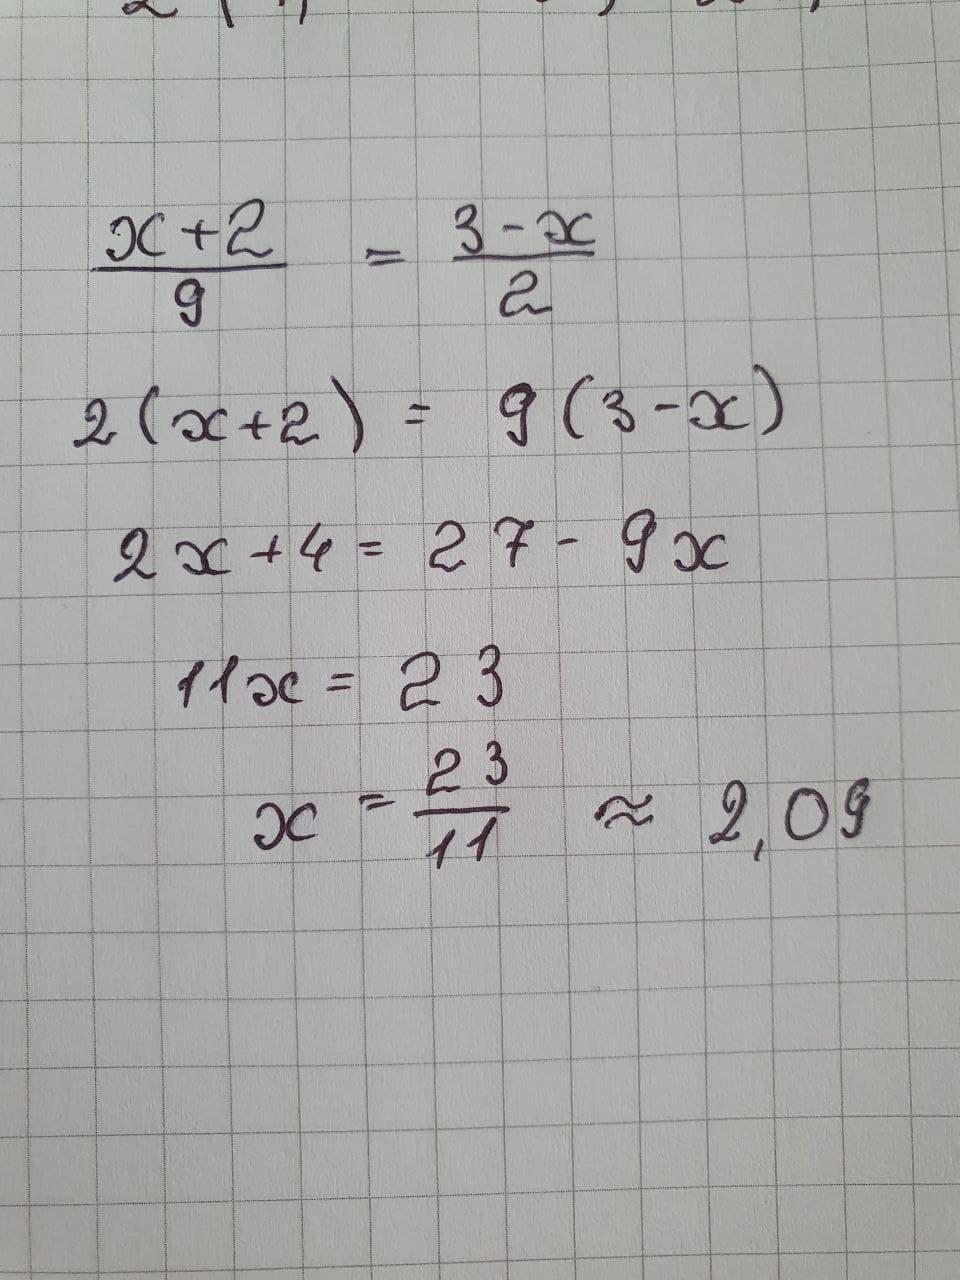 x+2/9 = 3-x/2
2(x+2) = 9(3-x)
2x+4 = 27 - 9x
11x = 23
x = 23/11 ≈ 2,09